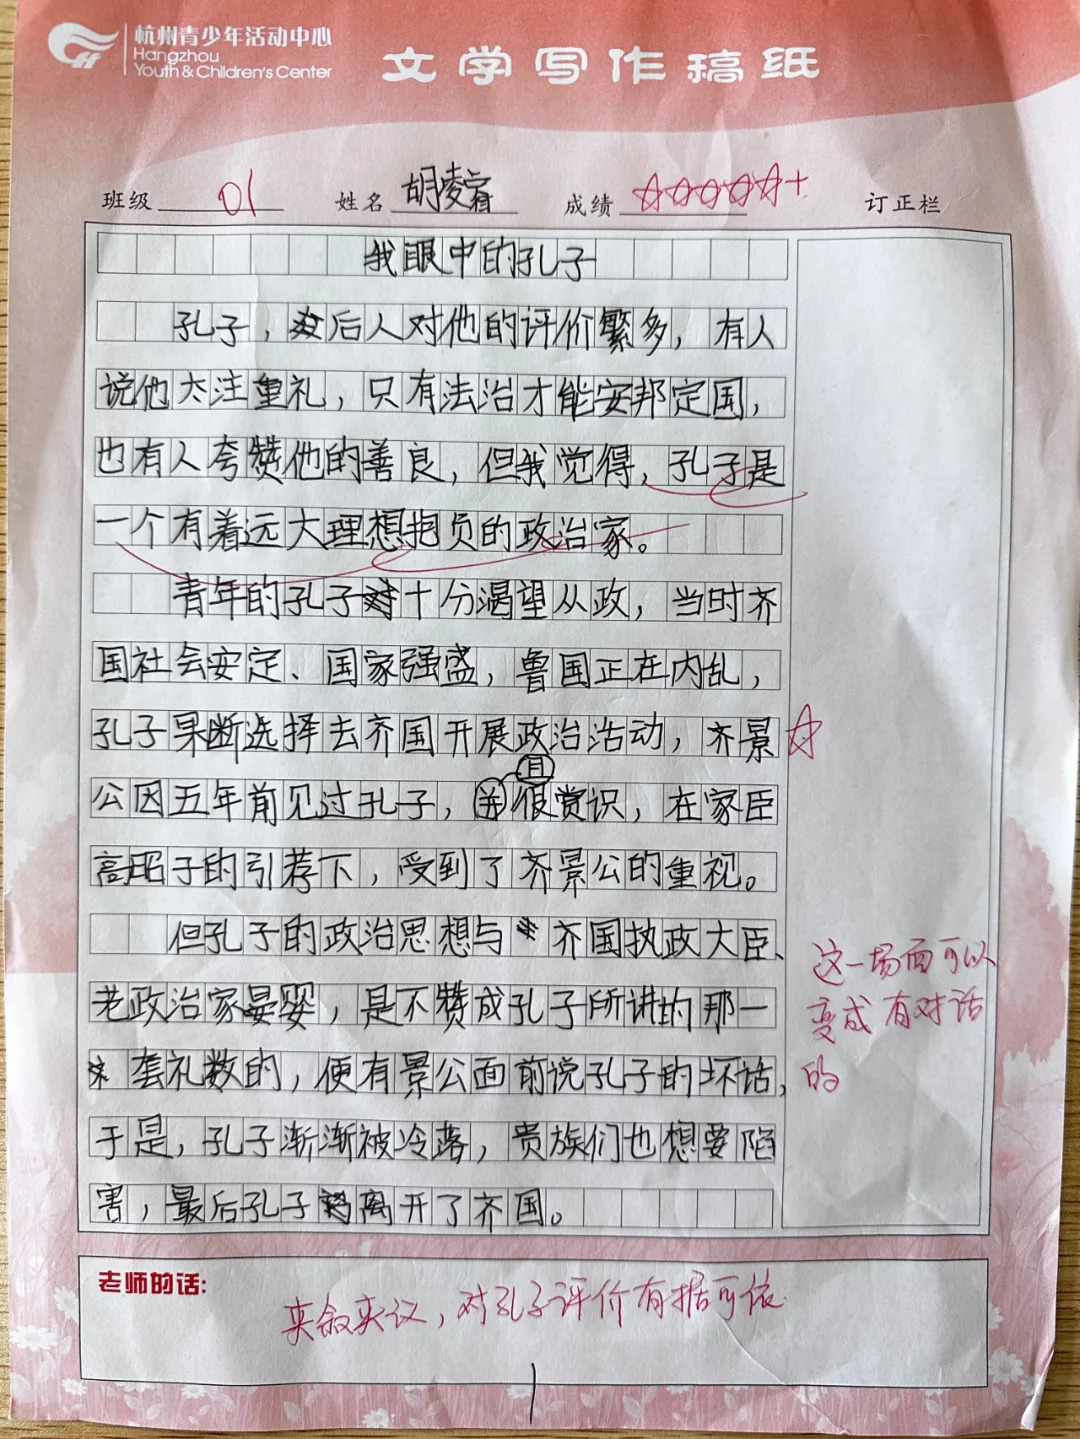 杭州青少年活动中心
Hangzhou
Youth & Children's Center
文学写作稿纸
班级 01 姓名 胡凌睿 成绩 ☆☆☆☆☆+ 订正栏
我眼中的孔子
孔子，后人对他的评价繁多，有人
说他太注重礼，只有法治才能安邦定国，
也有人夸赞他的善良，但我觉得，孔子是
一个有着远大理想抱负的政治家。
青年的孔子十分渴望从政，当时齐
国社会安定、国家强盛，鲁国正在内乱，
孔子果断选择去齐国开展政治活动，齐景
公因五年前见过孔子，并且很赏识，在家臣
高昭子的引荐下，受到了齐景公的重视。
但孔子的政治思想与齐国执政大臣、
老政治家晏婴，是不赞成孔子所讲的那一
套礼数的，便有景公面前说孔子的坏话，
于是，孔子渐渐被冷落，贵族们也想要陷
害，最后孔子离开了齐国。
这一场面可以
变成有对话
的
老师的话：
夹叙夹议，对孔子评价有据可依
1